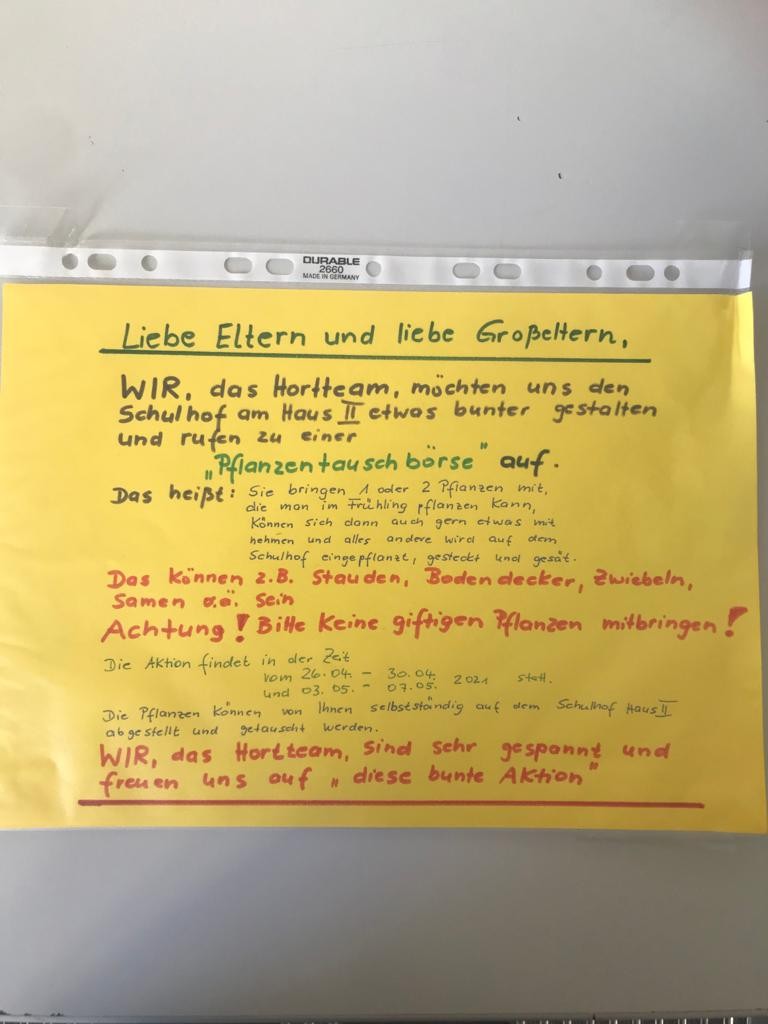 DURABLE
2660
MADE IN GERMANY
Liebe Eltern und liebe Großeltern,
WIR, das Hortteam, möchten uns den
Schulhof am Haus II etwas bunter gestalten
und rufen zu einer
„Pflanzentauschbörse" auf.
Das heißt: Sie bringen 1 oder 2 Pflanzen mit,
die man im Frühling pflanzen kann,
können sich dann auch gern etwas mit
nehmen und alles andere wird auf dem
Schulhof eingepflanzt, gesteckt und gesät.
Das können z.B. Stauden, Bodendecker, Zwiebeln,
Samen o.ä. sein
Achtung! Bitte keine giftigen Pflanzen mitbringen!
Die Aktion findet in der Zeit
vom 26.04. - 30.04.
und 03.05. - 07.05. 2021 statt.
Die Pflanzen können von Ihnen selbstständig auf dem Schulhof Haus II
abgestellt und getauscht werden.
WIR, das Hortteam, sind sehr gespannt und
freuen uns auf „diese bunte Aktion"